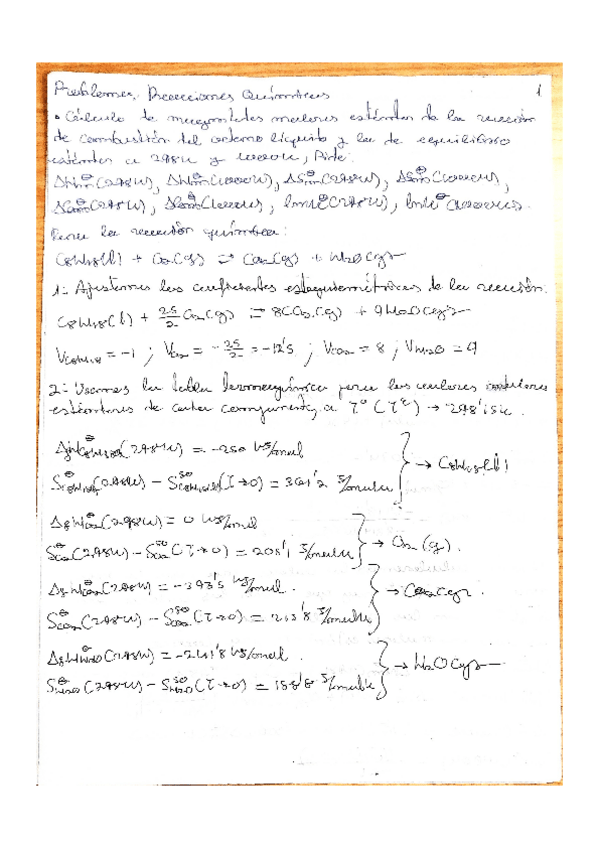 Problemas, Reacciones Químicas 1
• Cálculo de magnitudes molares estándar de la reacción
de combustión del octano líquido y la de equilibrio
estándar a 298K y 1000K, Pide:
ΔHm°(298K), ΔHm°(1000K), ΔSm°(298K), ΔSm°(1000K),
ΔGm°(298K), ΔGm°(1000K), lnK°(298K), lnK°(1000K).
Para la reacción química:
C8H18(l) + O2(g) = CO2(g) + H2O(g)
1- Ajustamos los coeficientes estequiométricos de la reacción.
C8H18(l) + 25/2 O2(g) = 8CO2(g) + 9H2O(g)
νC8H18 = -1 ; νO2 = -25/2 = -12'5 ; νCO2 = 8 ; νH2O = 9
2- Usamos la tabla termoquímica para los valores molares
estándares de cada componente, a T° (T°) → 298'15K.
ΔfH°C8H18(298K) = -250 kJ/mol
S°C8H18(298K) - S°C8H18(T→0) = 361'2 J/molK } → C8H18(l)
ΔfH°O2(298K) = 0 kJ/mol
S°O2(298K) - S°O2(T→0) = 205'1 J/molK } → O2(g).
ΔfH°CO2(298K) = -393'5 kJ/mol.
S°CO2(298K) - S°CO2(T→0) = 213'8 J/molK } → CO2(g).
ΔfH°H2O(298K) = -241'8 kJ/mol.
S°H2O(298K) - S°H2O(T→0) = 188'8 J/molK } → H2O(g)